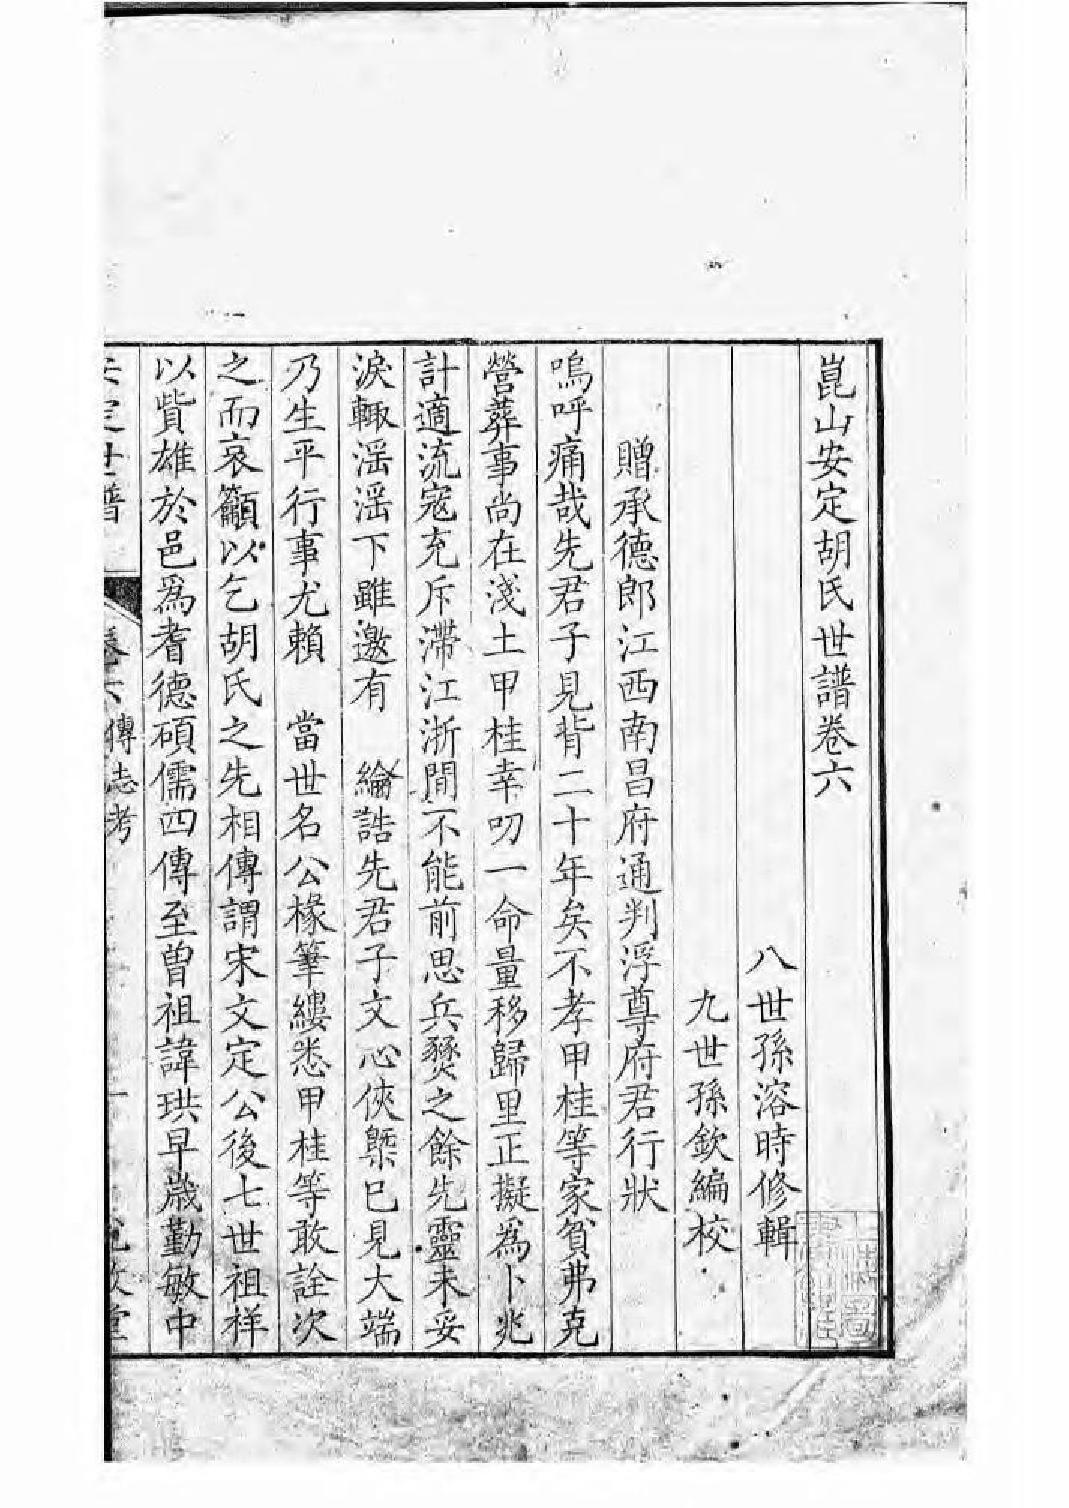 崑山安定胡氏世譜卷六
八世孫溶時修輯
九世孫欽編校
贈承德郎江西南昌府通判浮尊府君行狀
嗚呼痛哉先君子見背二十年矣不孝甲桂等家貧弗克
營葬事尚在淺土甲桂幸叨一命量移歸里正擬爲卜兆
計適流寇充斥滯江浙間不能前思兵燹之餘先靈未妥
淚輙滛滛下雖邀有　綸誥先君子文心俠槩已見大端
乃生平行事尤賴　當世名公椽筆縷悉甲桂等敢詮次
之而哀籲以乞胡氏之先相傳謂宋文定公後七世祖祥
以貲雄於邑爲耆德碩儒四傳至曾祖諱珙早歲勤敏中
安定世譜　卷六 傳志考　一